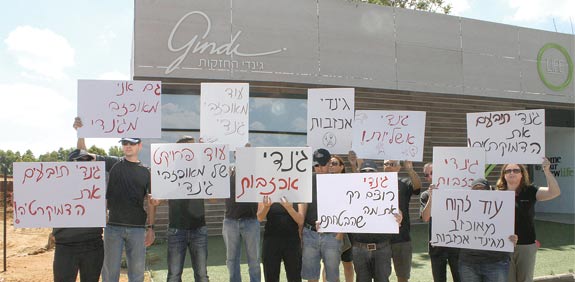 Gindi
גינדי החזקות
LIFE
גם אני
מאוכזב
מגינדי
עוד
מאוכזבי
גינדי
גינדי
אכזבות
גינדי
אשליות!
גינדי תובעים
את
הדמוקרטיה!
גינדי תובעים
את
הדמוקרטיה!
עוד פרויקט
של מאוכזבי
גינדי
גינדי
אכזבות
גינדי
רוצים רק
את מה
שהבטחתם!
גינדי
אכזבות
עוד לקוח
מאוכזב
מגינדי אכזבות
life